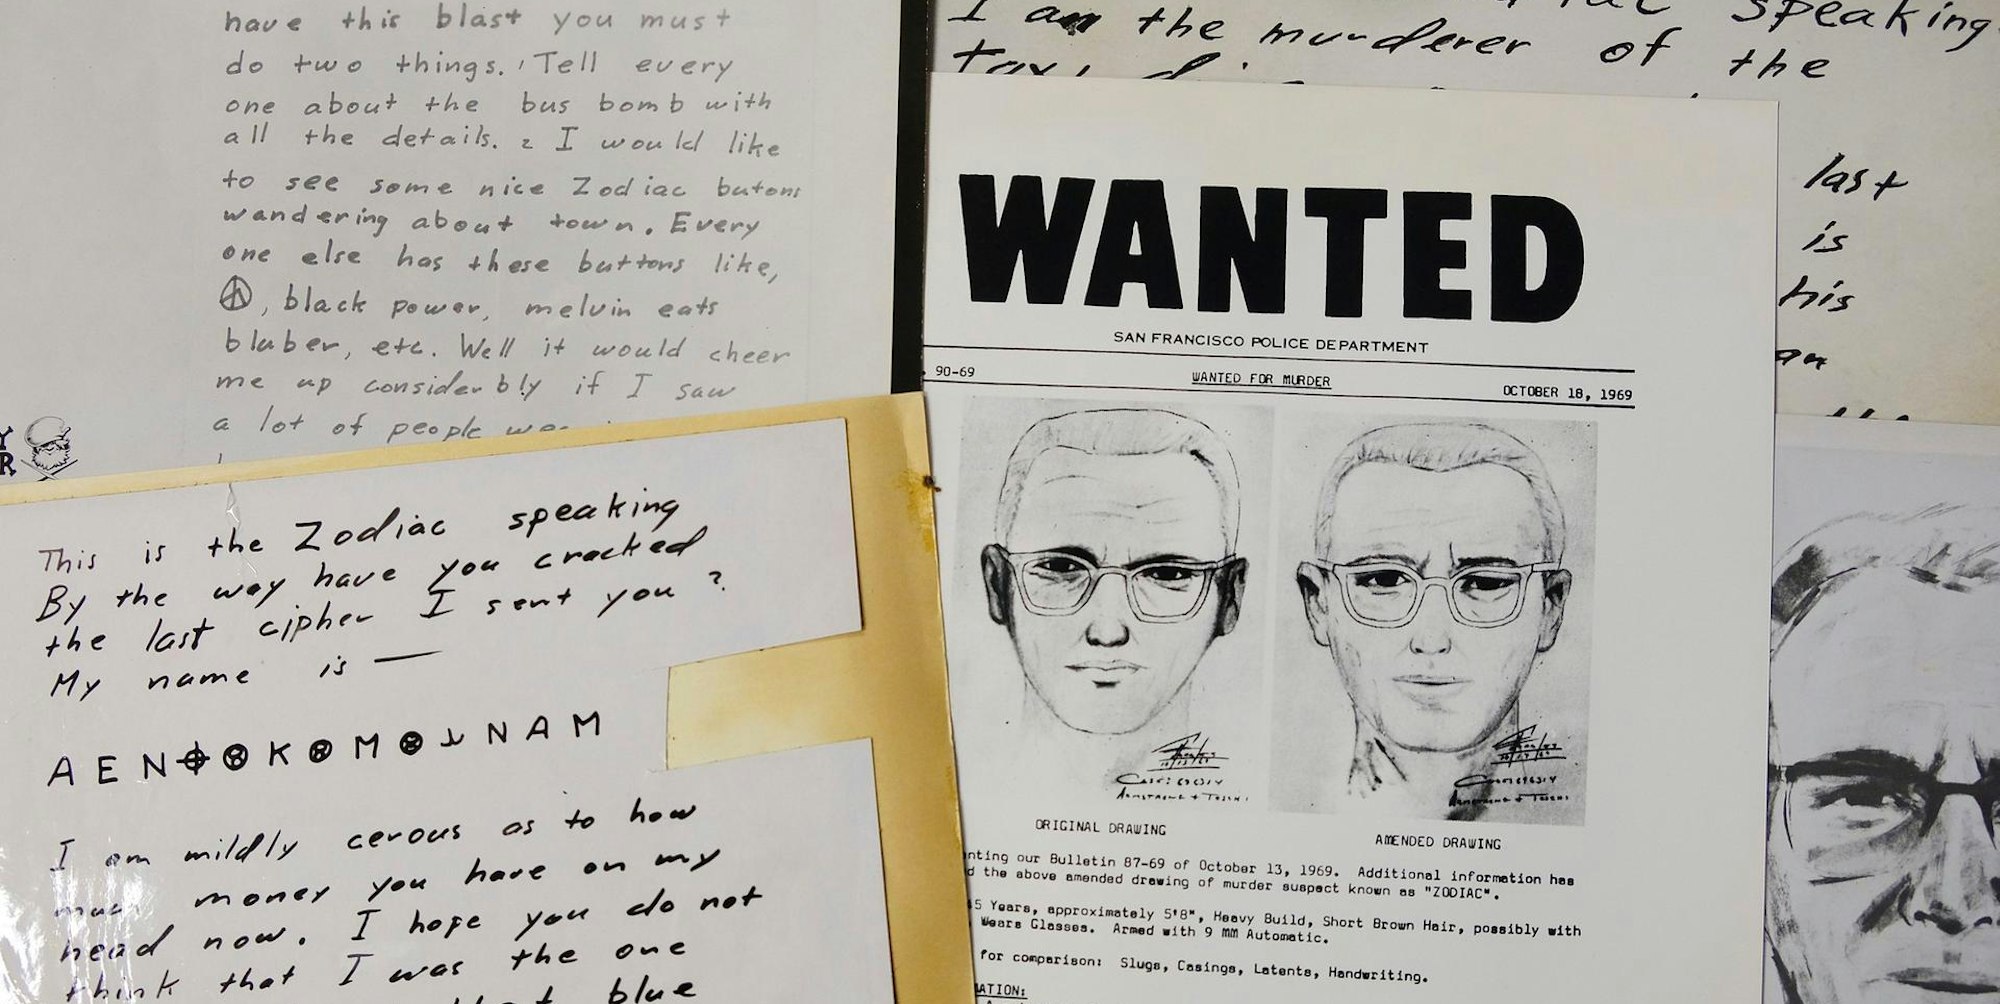 have this blast you must
do two things. 1 Tell every
one about the bus bomb with
all the details. 2 I would like
to see some nice Zodiac butons
wandering about town. Every
one else has these buttons like,
, black power, melvin eats
bluber, etc. Well it would cheer
me up considerbly if I saw
a lot of people
This is the Zodiac speaking
By the way have you cracked
the last cipher I sent you ?
My name is —
A E N ⌖ K M N A M
I am mildly cerous as to how
money you have on my
head now. I hope you do not
think that I was the one
blue
speaking
I am the murderer of the
last
is
his
an
WANTED
SAN FRANCISCO POLICE DEPARTMENT
90-69 WANTED FOR MURDER OCTOBER 18, 1969
ORIGINAL DRAWING AMENDED DRAWING
our Bulletin 87-69 of October 13, 1969. Additional information has
the above amended drawing of murder suspect known as "ZODIAC".
Years, approximately 5'8", Heavy Build, Short Brown Hair, possibly with
Wears Glasses. Armed with 9 MM Automatic.
for comparison: Slugs, Casings, Latents, Handwriting.